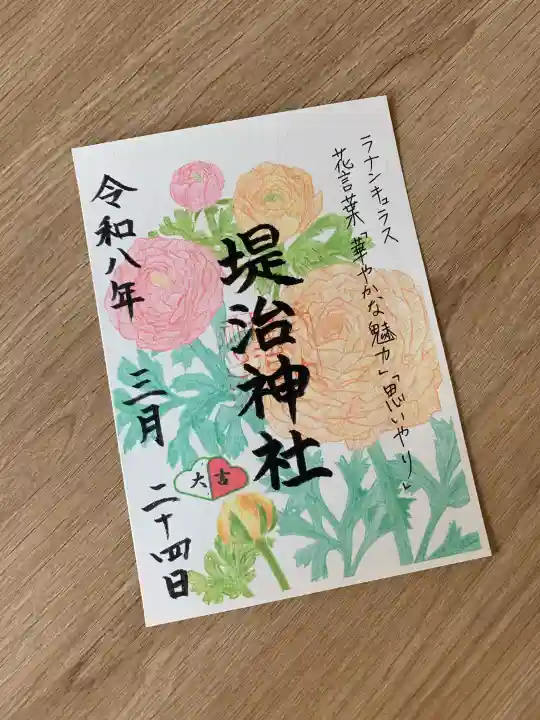 ラナンキュラス
花言葉「華やかな魅力」「思いやり」
堤治神社
令和八年
三月
二十四日
大吉